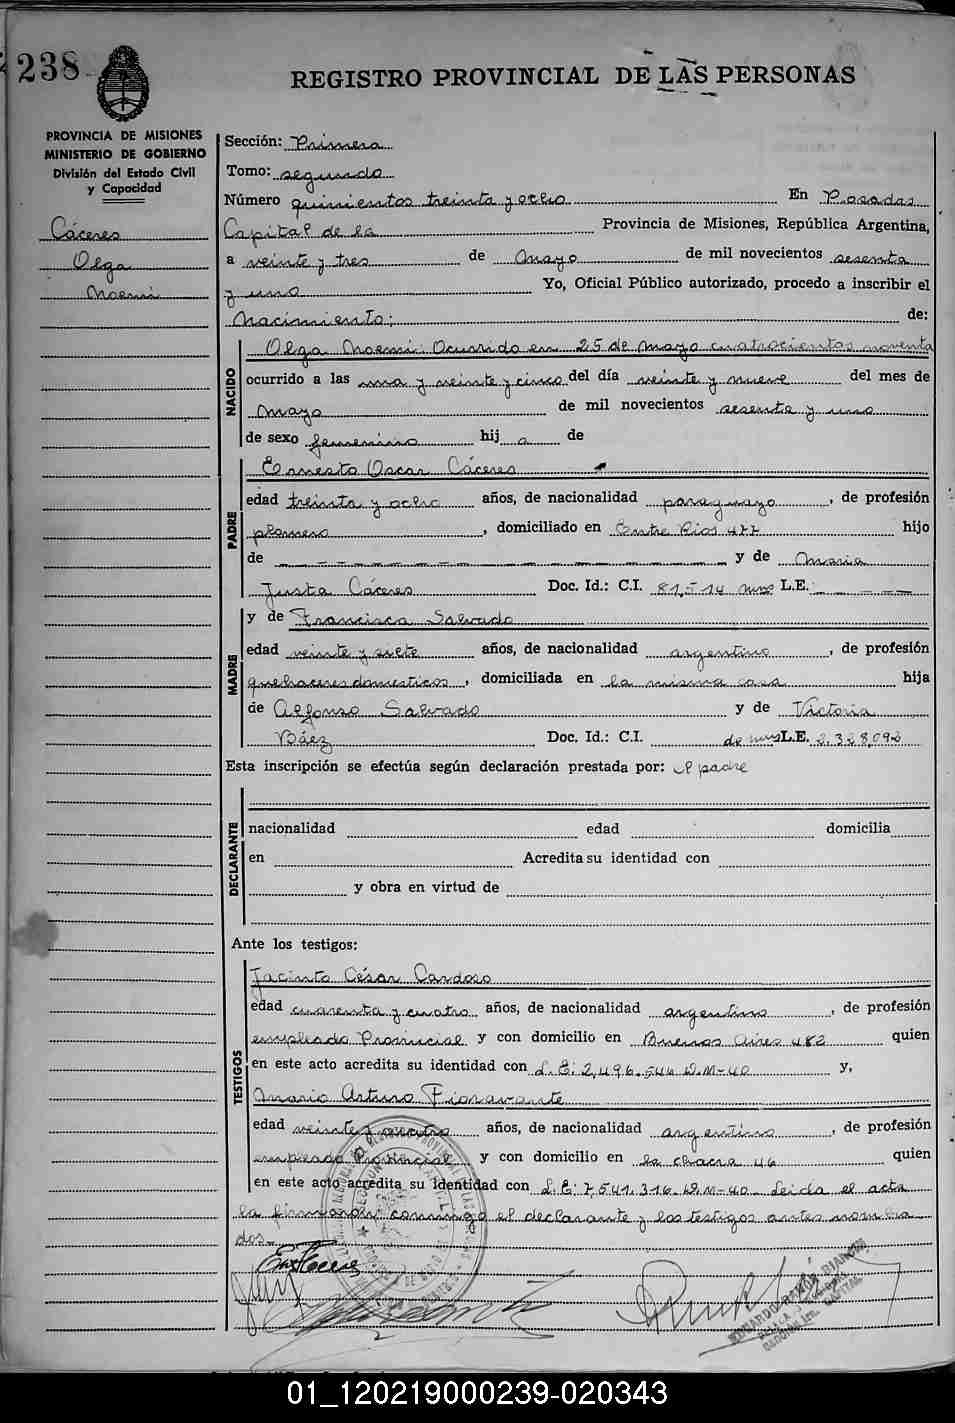 238
REGISTRO PROVINCIAL DE LAS PERSONAS
PROVINCIA DE MISIONES
MINISTERIO DE GOBIERNO
División del Estado Civil
y Capacidad
Cáceres
Olga
Noemi
Sección: Primera
Tomo: segundo
Número quinientos treinta y ocho En Posadas
Capital de la Provincia de Misiones, República Argentina,
a veinte y tres de mayo de mil novecientos sesenta
y uno Yo, Oficial Público autorizado, procedo a inscribir el
Nacimiento: de:
NACIDO
Olga Noemi: Ocurrido en 25 de mayo cuatrocientos noventa
ocurrido a las una y veinte y cinco del día veinte y nueve del mes de
mayo de mil novecientos sesenta y uno
de sexo femenino hij a de
PADRE
Ernesto Oscar Cáceres
edad treinta y ocho años, de nacionalidad paraguayo, de profesión
plomero, domiciliado en Entre Rios 477 hijo
de y de Maria
Justa Cáceres Doc. Id.: C.I. 81.514 mnes L.E.:
MADRE
y de Francisca Salvado
edad veinte y siete años, de nacionalidad argentino, de profesión
quehaceres domesticos, domiciliada en la misma casa hija
de Alfonso Salvado y de Victoria
Báez Doc. Id.: C.I. de mnes L.E. 2.328.092
Esta inscripción se efectúa según declaración prestada por: el padre
DECLARANTE
nacionalidad edad domicilia
en Acredita su identidad con
y obra en virtud de
Ante los testigos:
TESTIGOS
Jacinto César Cardoso
edad cuarenta y cuatro años, de nacionalidad argentino, de profesión
empleado Provincial y con domicilio en Buenos Aires 482 quien
en este acto acredita su identidad con L.E: 2.496.544 D.M-40 y,
Mario Arturo Fioravante
edad veinte y años, de nacionalidad argentino, de profesión
empleado Provincial y con domicilio en la chacra 46 quien
en este acto acredita su identidad con L.E: 7.541.316 D.M-40 Leida el acta
la firman conmigo el declarante y los testigos antes nombra
dos.
EDUARDO RAMÓN BIANCHI
CAPITAL
01_120219000239-020343